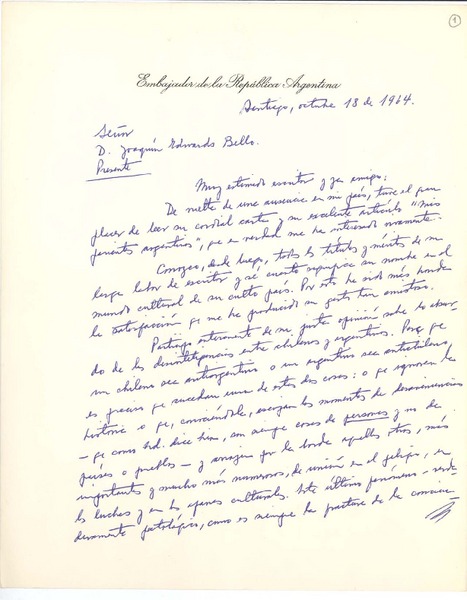 1
Embajador de la República Argentina
Santiago, octubre 18 de 1964.
Señor
D. Joaquín Edwards Bello.
Presente
Muy estimado escritor y ya amigo:
De vuelta de una ausencia en mi país, tuve el gran
placer de leer su cordial carta y su excelente artículo "Mis
parientes argentinos", que en verdad me ha interesado vivamente.
Conozco, desde luego, todos los títulos y méritos de su
larga labor de escritor y sé cuanto significa su nombre en el
mundo cultural de su culto país. Por eso ha sido más honda
la satisfacción que me ha producido su gesto tan amistoso.
Participo enteramente de su justa opinión sobre lo absur-
do de las desinteligencias entre chilenos y argentinos. Para que
un chileno sea antiargentino o un argentino sea antichileno
es preciso que suceda una de estas dos cosas: o que ignoren la
historia o que, conociéndola, escojan los momentos de desavenencias
— que como Ud. dice bien, son siempre cosas de personas y no de
países o pueblos — y arrojen por la borda aquellos otros, más
importantes y mucho más numerosos, de unión en el peligro, en
las luchas y en los afanes culturales. Este último fenómeno — verda-
deramente patológico, como es siempre la fractura de la concien-